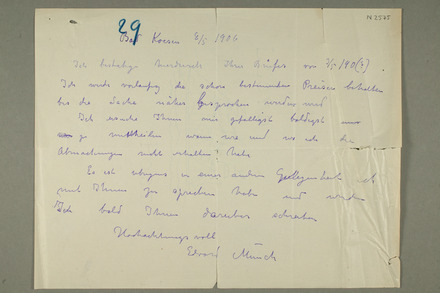 N 2575
29
Bad Koesen 8/5 1906
Ich bestätige hierdurch Ihre Briefes vor 7/5 190(?)
Ich vorläufig die schon bestimmten Preise behalten
bis die Sache näher besprochen werden
Ich ersuche Ihnen mir gefälligst baldigst
zu mittheilen wann wie und wo ich die
Abmachungen nicht erhalten habe
Es ist übrigens in einer andern Gelegenheit ich
mit Ihnen zu sprechen habe und werde
Ich bald Ihnen darüber schreiben
Hochachtungsvoll
Edvard Munch